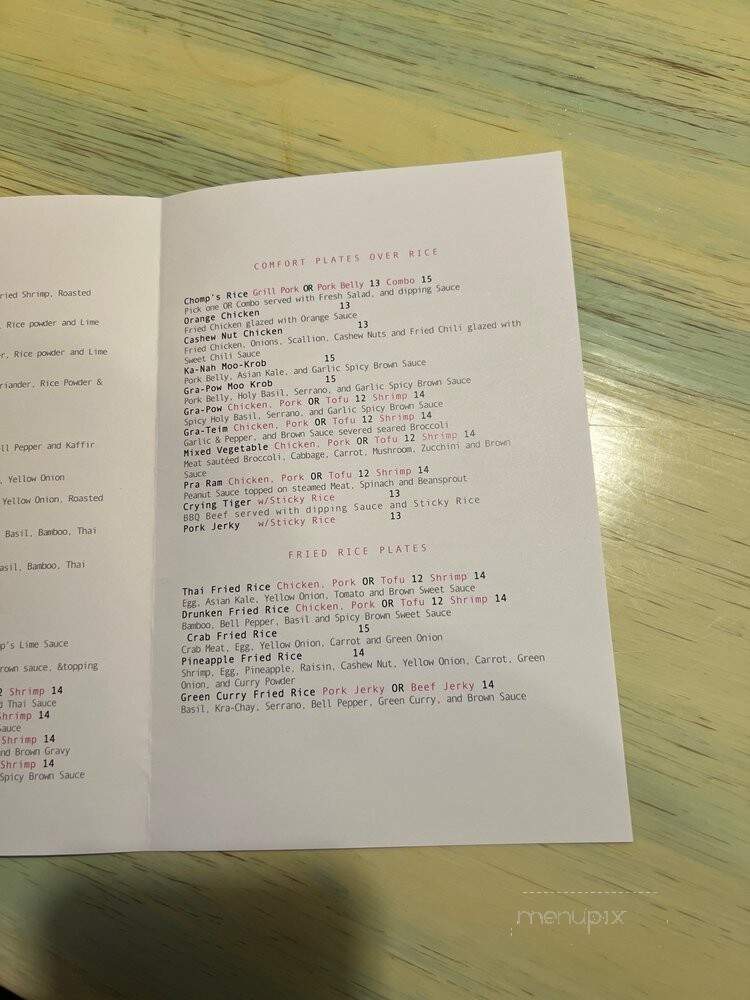 ried Shrimp, Roasted
, Rice powder and Lime
r, Rice powder and Lime
riander, Rice Powder &
ll Pepper and Kaffir
, Yellow Onion
Yellow Onion, Roasted
Basil, Bamboo, Thai
asil, Bamboo, Thai
p's Lime Sauce
rown sauce, &topping
2 Shrimp 14
d Thai Sauce
Shrimp 14
auce
Shrimp 14
nd Brown Gravy
Shrimp 14
Spicy Brown Sauce
COMFORT PLATES OVER RICE
Chomp's Rice Grill Pork OR Pork Belly 13 Combo 15
Pick one OR Combo served with Fresh Salad, and dipping Sauce
Orange Chicken 13
Fried Chicken glazed with Orange Sauce
Cashew Nut Chicken 13
Fried Chicken, Onions, Scallion, Cashew Nuts and Fried Chili glazed with
Sweet Chili Sauce
Ka-Nah Moo-Krob 15
Pork Belly, Asian Kale, and Garlic Spicy Brown Sauce
Gra-Pow Moo Krob 15
Pork Belly, Holy Basil, Serrano, and Garlic Spicy Brown Sauce
Gra-Pow Chicken, Pork OR Tofu 12 Shrimp 14
Spicy Holy Basil, Serrano, and Garlic Spicy Brown Sauce
Gra-Teim Chicken, Pork OR Tofu 12 Shrimp 14
Garlic & Pepper, and Brown Sauce severed seared Broccoli
Mixed Vegetable Chicken, Pork OR Tofu 12 Shrimp 14
Meat sautéed Broccoli, Cabbage, Carrot, Mushroom, Zucchini and Brown
Sauce
Pra Ram Chicken, Pork OR Tofu 12 Shrimp 14
Peanut Sauce topped on steamed Meat, Spinach and Beansprout
Crying Tiger w/Sticky Rice 13
BBQ Beef served with dipping Sauce and Sticky Rice
Pork Jerky w/Sticky Rice 13
FRIED RICE PLATES
Thai Fried Rice Chicken, Pork OR Tofu 12 Shrimp 14
Egg, Asian Kale, Yellow Onion, Tomato and Brown Sweet Sauce
Drunken Fried Rice Chicken, Pork OR Tofu 12 Shrimp 14
Bamboo, Bell Pepper, Basil and Spicy Brown Sweet Sauce
Crab Fried Rice 15
Crab Meat, Egg, Yellow Onion, Carrot and Green Onion
Pineapple Fried Rice 14
Shrimp, Egg, Pineapple, Raisin, Cashew Nut, Yellow Onion, Carrot, Green
Onion, and Curry Powder
Green Curry Fried Rice Pork Jerky OR Beef Jerky 14
Basil, Kra-Chay, Serrano, Bell Pepper, Green Curry, and Brown Sauce
menupix